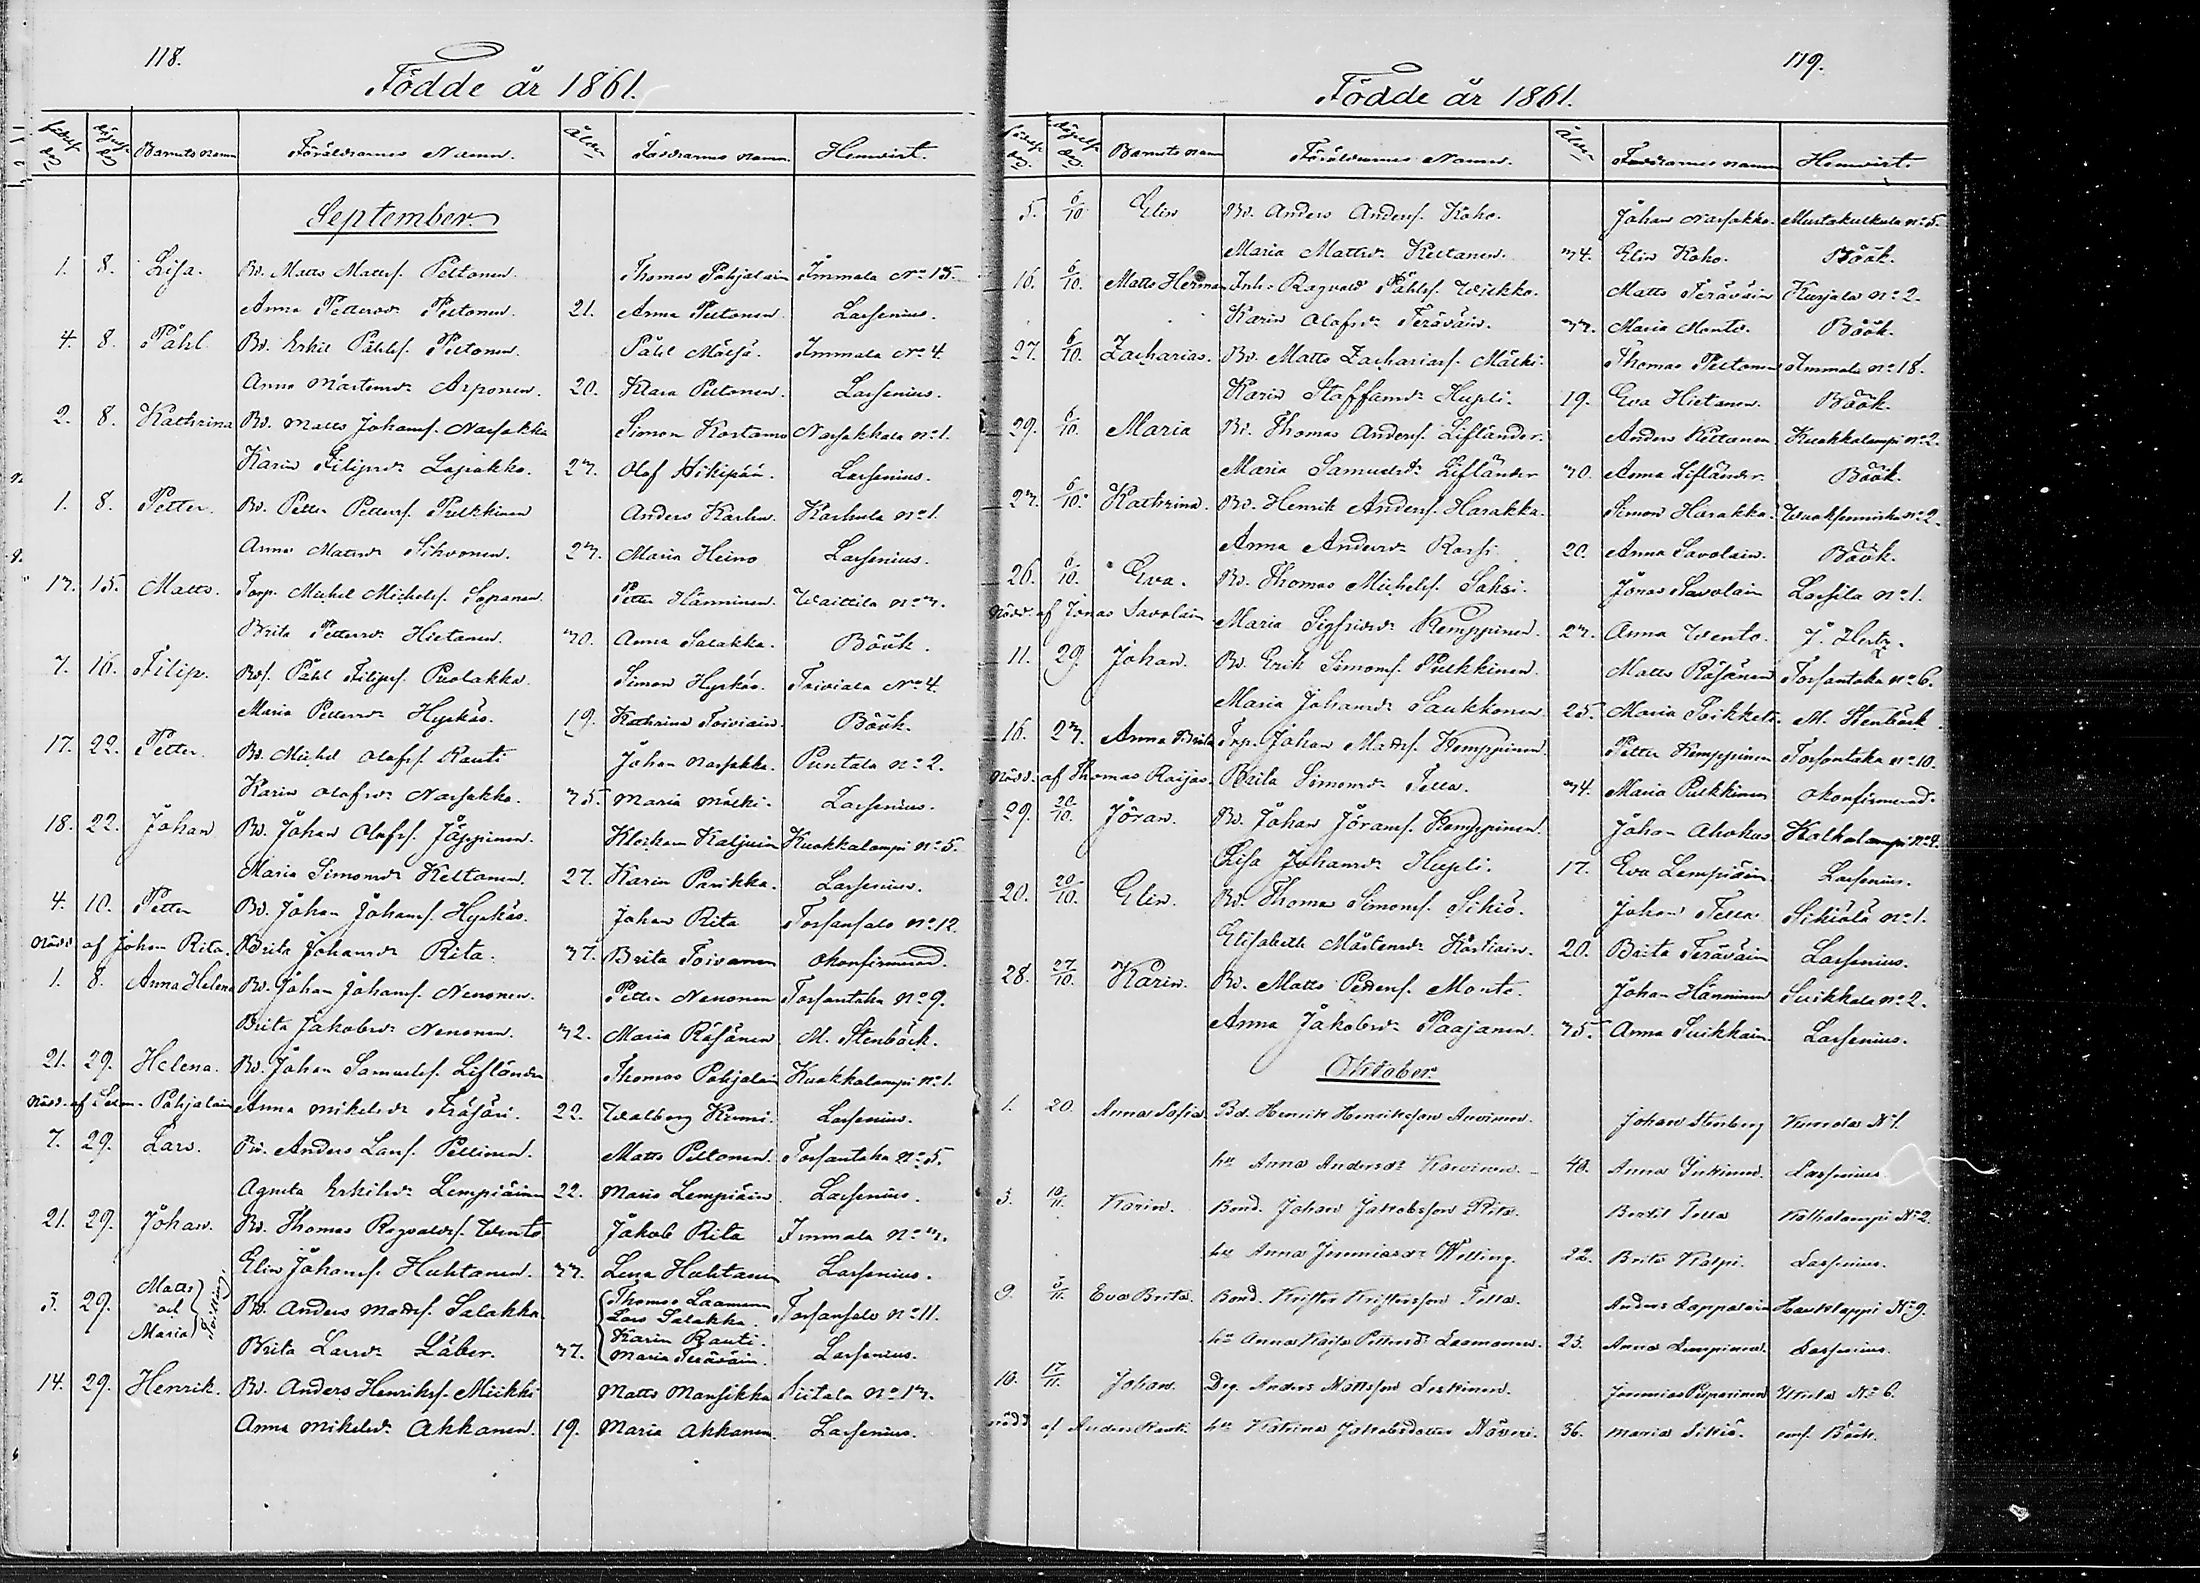 118.
Födde år 1861.
födelse dag döpelse dag Barnets namn Föräldrarnes Namn. Ålder Faddrarnes namn Hemvist.
September
1. 8. Lisa. Bd. Matts Mattsf. Peltonen. Thomas Pohjalain Immala No 15.
Anna Pettersdr Peltonen. 21. Anna Peltonen Lassenius.
4. 8. Påhl Bd. Erkil Påhlsf. Peltonen. Påhl Mälsä. Immala No 4
Anna Mårtensdr Arponen. 20. Klara Peltonen. Lassenius.
2. 8. Kathrina Bd. Matts Johansf. Narsakka Simon Kostamo Narsakkala no 1.
Karin Filipsdr Lajakko. 23. Olof Hikipää. Lassenius.
1. 8. Petter. Bd. Petter Pettersf. Pulkkinen Anders Karhu. Karhula no 1.
Anna Mattsdr Sihvonen. 23. Maria Heino Lassenius.
13. 15. Matts. Torp. Michel Michelsf. Sopanen Petter Hänninen. Waittila no 3.
Brita Pettersdr Hietanen. 30. Anna Salakka. Böök.
7. 16. Filip. Bdf. Påhl Filipsf. Puolakka. Simon Hyrkäs. Toiviala No 4.
Maria Pettersdr Hyrkäs. 19. Kathrina Toiviain. Böök.
17. 22. Petter. Bd. Michel Olofsf. Rauti Johan Narsakka. Puntala no 2.
Karin Olofsdr Narsakka. 35. Maria Mälki. Lassenius.
18. 22. Johan Bd. Johan Olofsf. Jäppinen. Kaljuin Kuokkalampi no 5.
Maria Simonsdr Keltanen. 27. Karin Parikka. Lassenius.
4. 10. Petter Bd. Johan Johansf. Hyrkäs. Johan Rita Torsansalo no 12.
Nödd. af Johan Rita. Brita Johansdr Rita. 37. Brita Toivanen okonfirmerad.
1. 8. Anna Helena Bd. Johan Johansf. Nenonen. Petter Nenonen Torsantaka No 9.
Brita Jakobsdr Nenonen. 32. Maria Räsänen M. Stenbäck.
21. 29. Helena. Bd. Johan Samuelsf. Lifländer Thomas Pohjalain Kuokkalampi no 1.
Nödd. af Pohjalain Anna Mikelsdr Träjäri. 22. Walborg Kruni. Lassenius.
7. 29. Lars. Bd. Anders Larsf. Pellinen. Matts Peltonen. Torsantaka no 5.
Agneta Erkilsdr Lempiäinen 22. Maria Lempiäin Lassenius.
21. 29. Johan. Bd. Thomas Ragvaldsf. Wento Jakob Rita Immala no 3.
Elin Johansf. Huhtanen. 33. Lena Huhtanen Lassenius.
3. 29. Matts och Maria tvilling. Bd. Anders Mattsf. Salakka. Thomas Laamanen Lars Salakka. Torsansalo no 11.
Brita Larsdr Läber. 37. Karin Rauti. Maria Teräväin. Lassenius.
14. 29. Henrik. Bd. Anders Henriksf. Miikki Matts Mansikka Siitala no 13.
Anna Mikelsdr Akkanen. 19. Maria Akkanen. Lassenius.
119.
Födde år 1861.
födelse dag. döpelse dag. Barnets namn Föräldrarnes Namn. Ålder Faddrarnes namn Hemvist.
5. 6/10 Elin Bd. Anders Andersf. Koho. Johan Narsakka. Mustakulkula no 5.
Maria Mattsdr Keltanen. 34. Elin Koho. Böök.
16. 6/10. Matts Herman Inh. Ragvald Påhlsf. Wilkko. Matts Teräväin Kurjala no 2.
Karin Olofsdr Teräväin. 33. Maria Monto. Böök.
27. 6/10. Zacharias. Bd. Matts Zachariasf. Mälki. Thomas Peltonen Immala no 18.
Karin Staffansdr Hupli. 19. Eva Hietanen. Böök.
29. 6/10. Maria Bd. Thomas Andersf. Lifländer. Anders Keltanen Kuokkalampi no 2.
Maria Samuelsdr Lifländer 30. Anna Lifländer. Böök.
23. 6/10. Kathrina. Bd. Henrik Andersf. Harakka. Simon Harakka. Wuoksenniska no 2.
Anna Andersdr Rossi 20. Anna Savolain. Böök.
26. 6/10. Eva. Bd. Thomas Michelsf. Saksi. Jonas Savolain Larsila no 1.
Nödd. af Jonas Savolain Maria Sigfridsdr Kemppinen. 23. Anna Wento. J. Hertz.
11. 29. Johan. Bd. Erik Simonsf. Pulkkinen. Matts Räsänen Torsantaka no 6.
Maria Johansdr Saukkonen. 25. Maria Poikkela. M. Stenbäck.
16. 23. Anna Brita Torp. Johan Mattsf. Kemppinen. Petter Kemppinen Torsantaka no 10.
Nödd. af Thomas Raijas. Brita Simonsdr Tella. 34. Maria Pulkkinen okonfirmerad.
29. 20/10. Jöran. Bd. Johan Jöransf. Kemppinen. Johan Ahokas Kalkalampi no 4.
Lisa Johansdr Hupli. 17. Eva Lempiäin Lassenius.
20. 20/10. Elin. Bd. Thomas Simonsf. Sikiö. Johan Tella Sikiölä no 1.
Elisabeth Mårtensdr Kostiain. 20. Brita Teräväin Lassenius.
28. 27/10. Karin. Bd. Matts Pettersf. Monto. Johan Hänninen Suikkala no 2.
Anna Jakobsdr Paajanen. 35. Anna Suikkain. Lassenius.
Oktober.
1. 20. Anna Sofia Bd. Henrik Henriksson Auvinen. Johan Stenberg No 1.
hu Anna Andersdr Karvinen. 40. Anna Inkinen. Lassenius
3. 10/11. Karin. Bond. Johan Jakobsson Rita. Bertil Tella Kalkalampi No 2.
hu Anna Jeremiasdr Welling. 22. Brita Kalpi. Lassenius.
9. 3/11. Eva Brita. Bond. Krister Kristersson Tella. Anders Lappalain Hauklappi No 9.
hu Anna Kaisa Pettersdr Laamanen. 23. Anna Lempinen. Lassenius.
10. 17/11. Johan. Drg. Anders Mattsson Leskinen. Jeremias Pesonen No 6.
nödd af Anders Rauti. hu Katrina Jakobsdotter Näveri. 36. Maria Sikiö. conf. Böök.